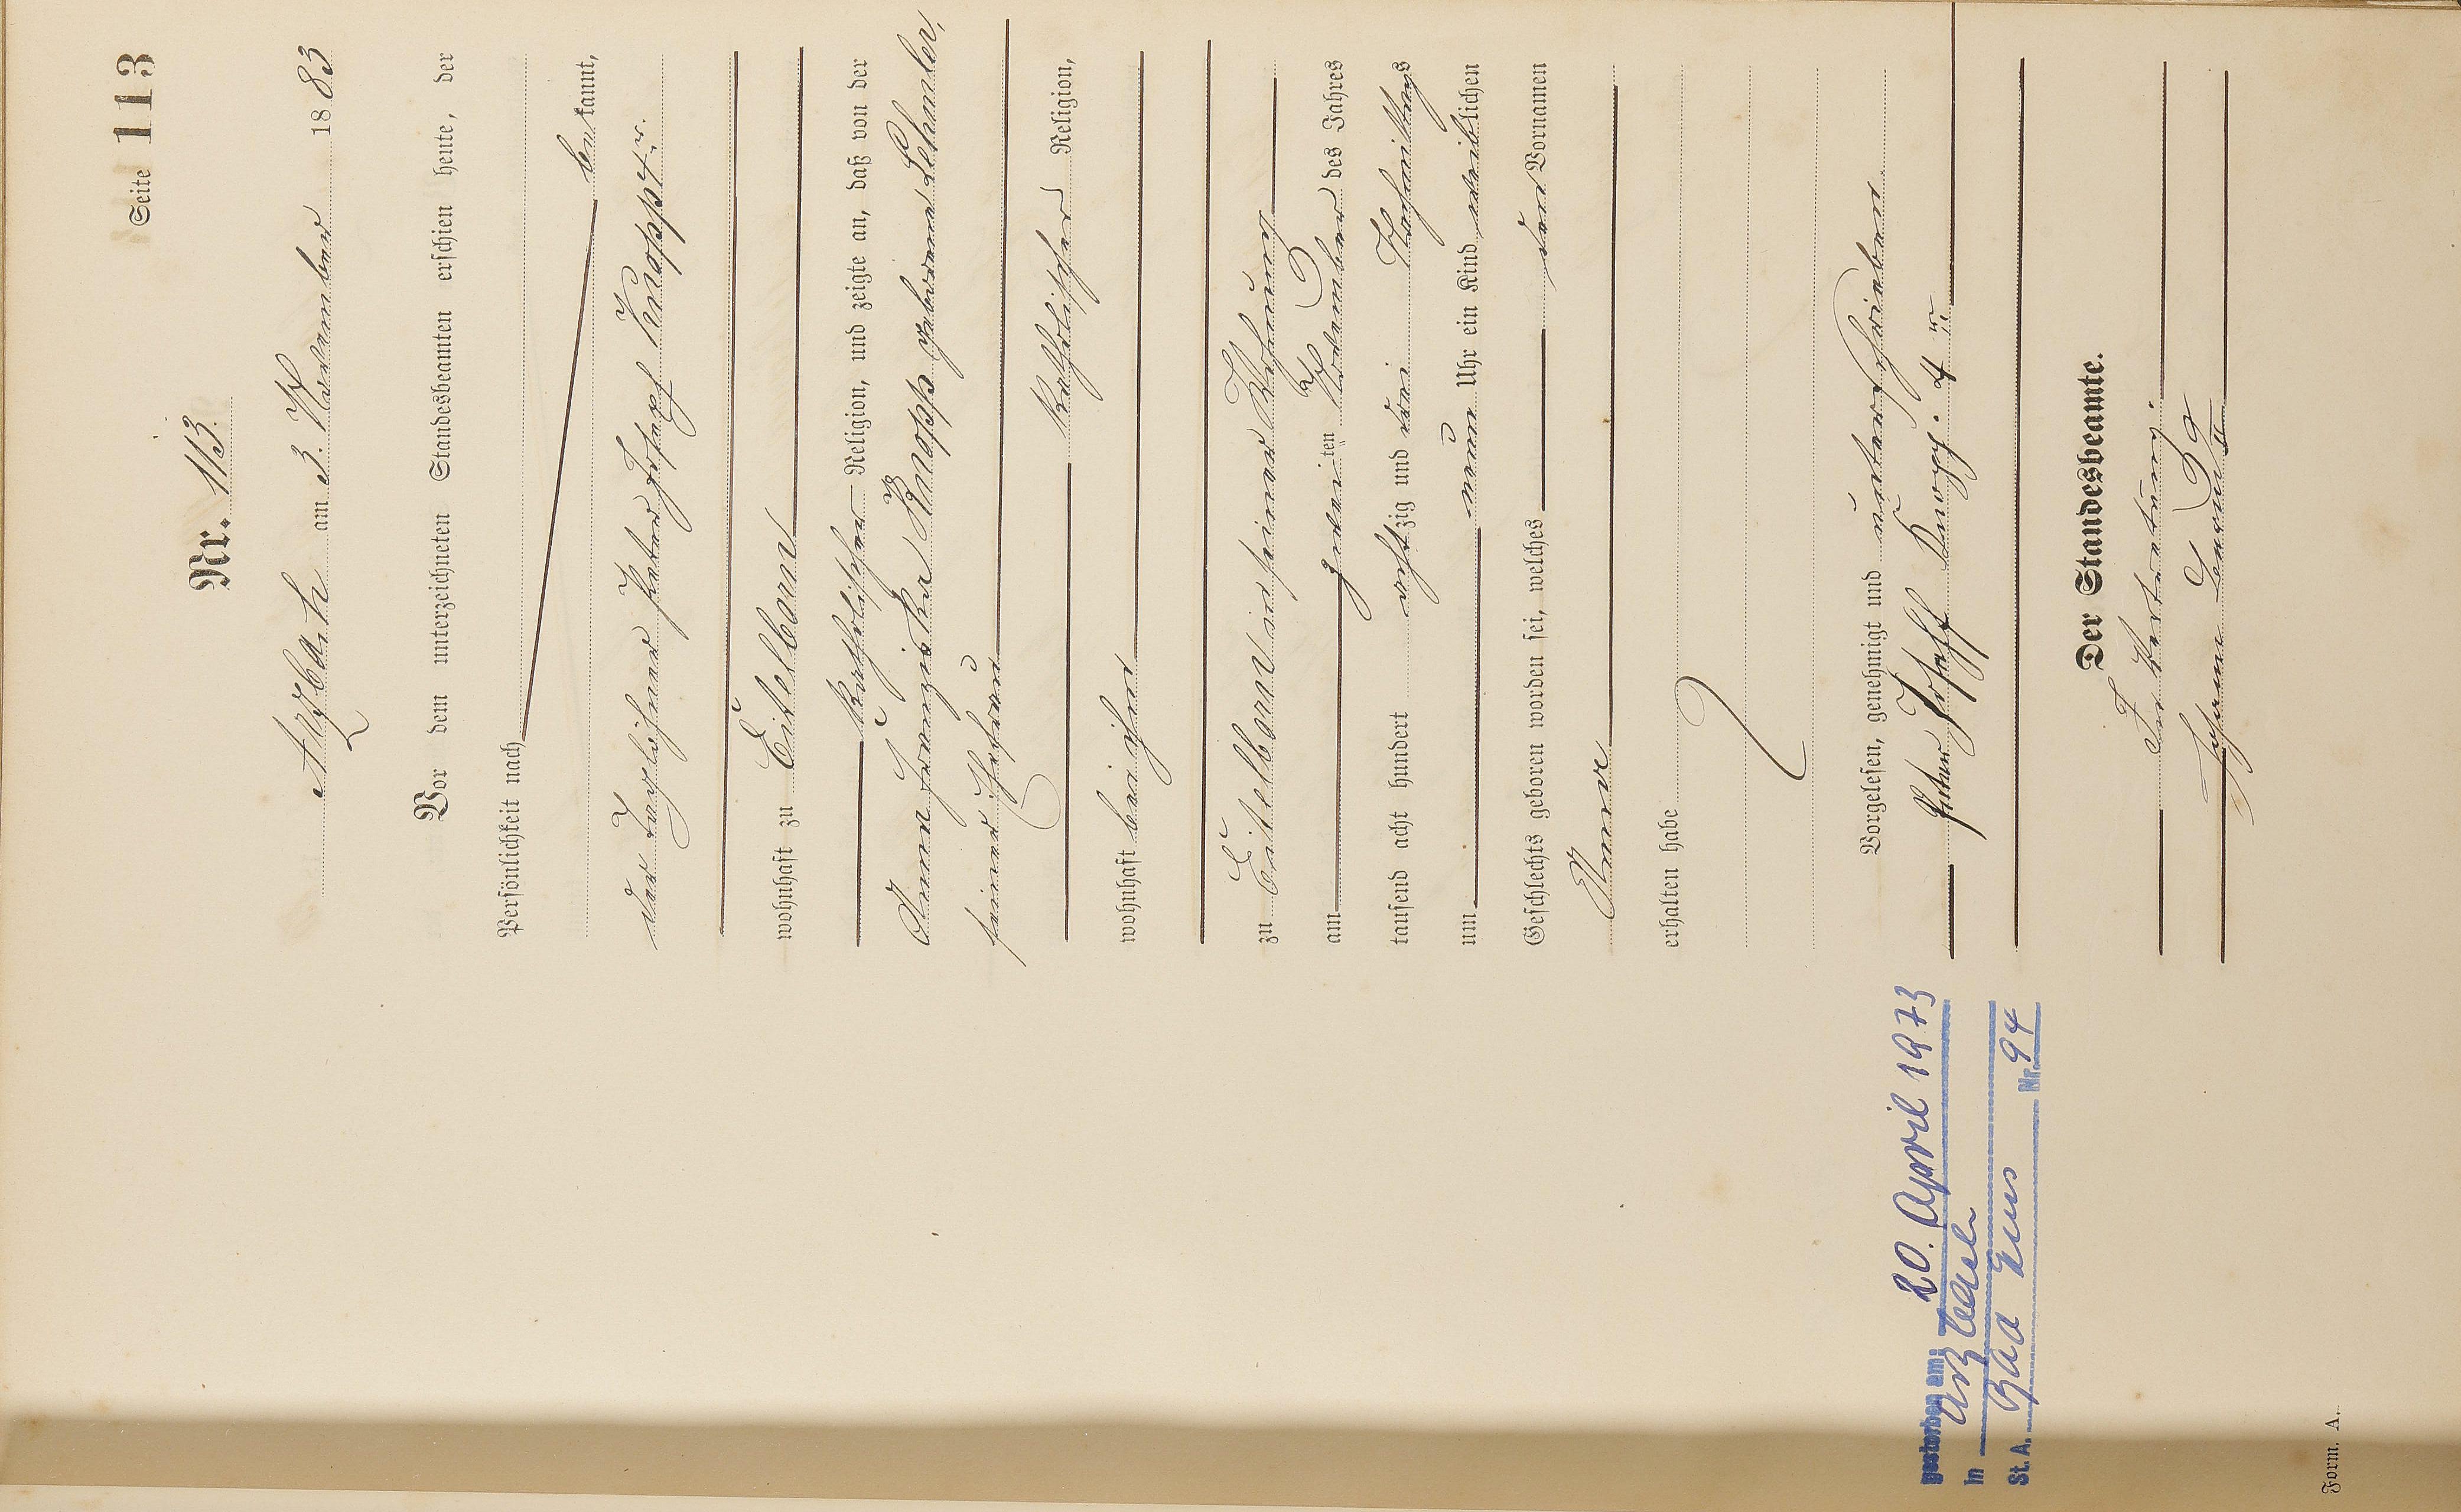 Seite 113
Nr. 113.
Arzbach am 3. November 1883
Vor dem unterzeichneten Standesbeamten erschien heute, der
Persönlichkeit nach
be kannt,
der Taglöhner Peter Joseph Knopp 4r.
wohnhaft zu Eitelborn
katholischer Religion, und zeigte an, daß von der
Anna Franziska Knopp geborene Lehmler,
seiner Ehefrau
katholischer Religion,
wohnhaft bei ihm
zu Eitelborn in seiner Wohnung
am zweiten November des Jahres
tausend acht hundert achtzig und drei Nachmittags
um neun Uhr ein Kind weiblichen
Geschlechts geboren worden sei, welches den Vornamen
Anna
erhalten habe
Vorgelesen, genehmigt und unterschrieben
Peter Joseff Knopp. 4r
Der Standesbeamte.
In Vertretung.
Johann
gestorben am: 20. April 1973
in Arzbach
St. A. Bad Ems Nr. 94
Form. A.